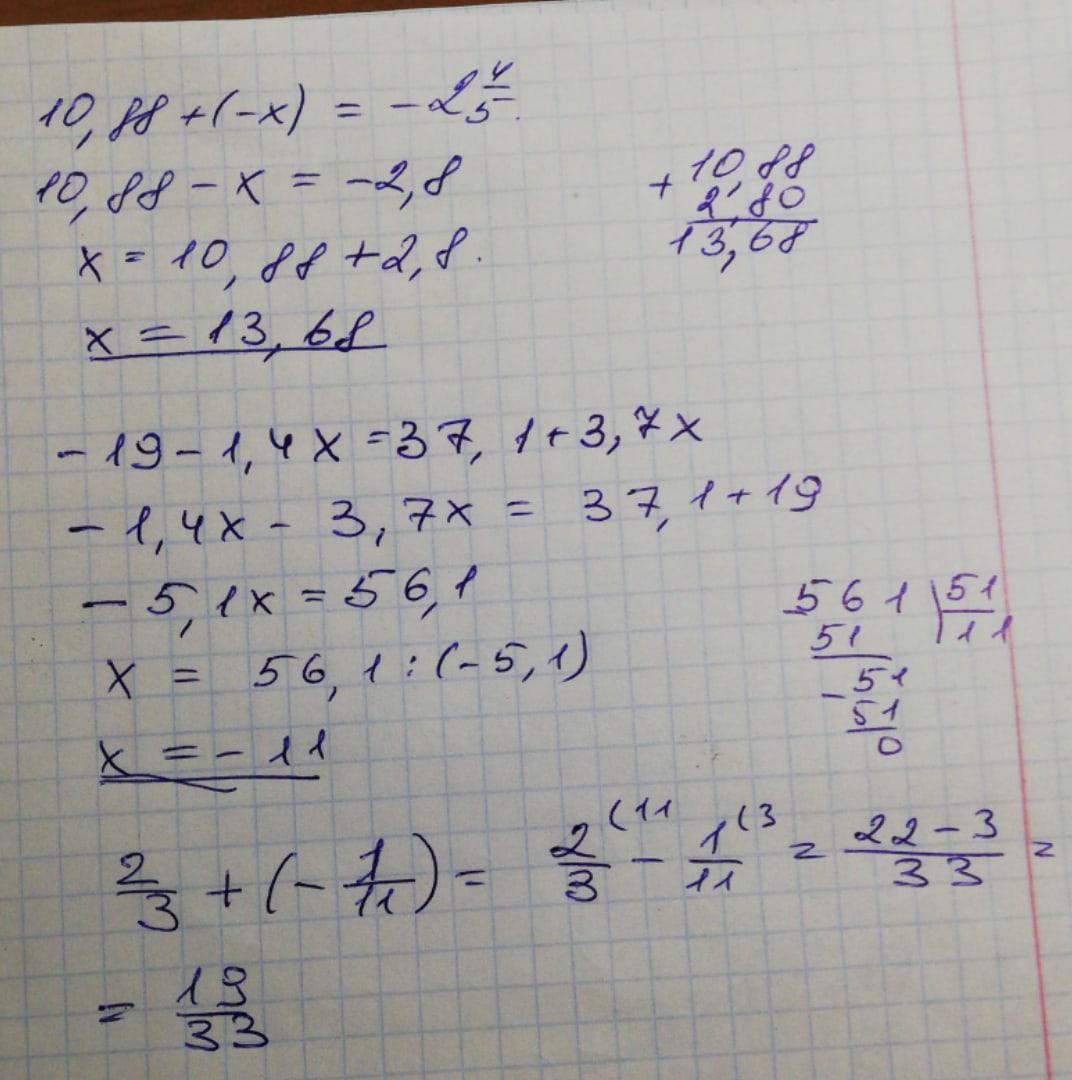 10,88 + (-x) = -2 4/5.
10,88 - x = -2,8
x = 10,88 + 2,8.
x = 13,68
+ 10,88
2,80
13,68
-19 - 1,4x = 37,1 + 3,7x
-1,4x - 3,7x = 37,1 + 19
-5,1x = 56,1
x = 56,1 : (-5,1)
x = -11
561 | 51
51 11
- 51
51
0
2/3 + (- 1/11) = 2/3 (11 - 1/11 (3 = 22-3/33 =
= 19/33